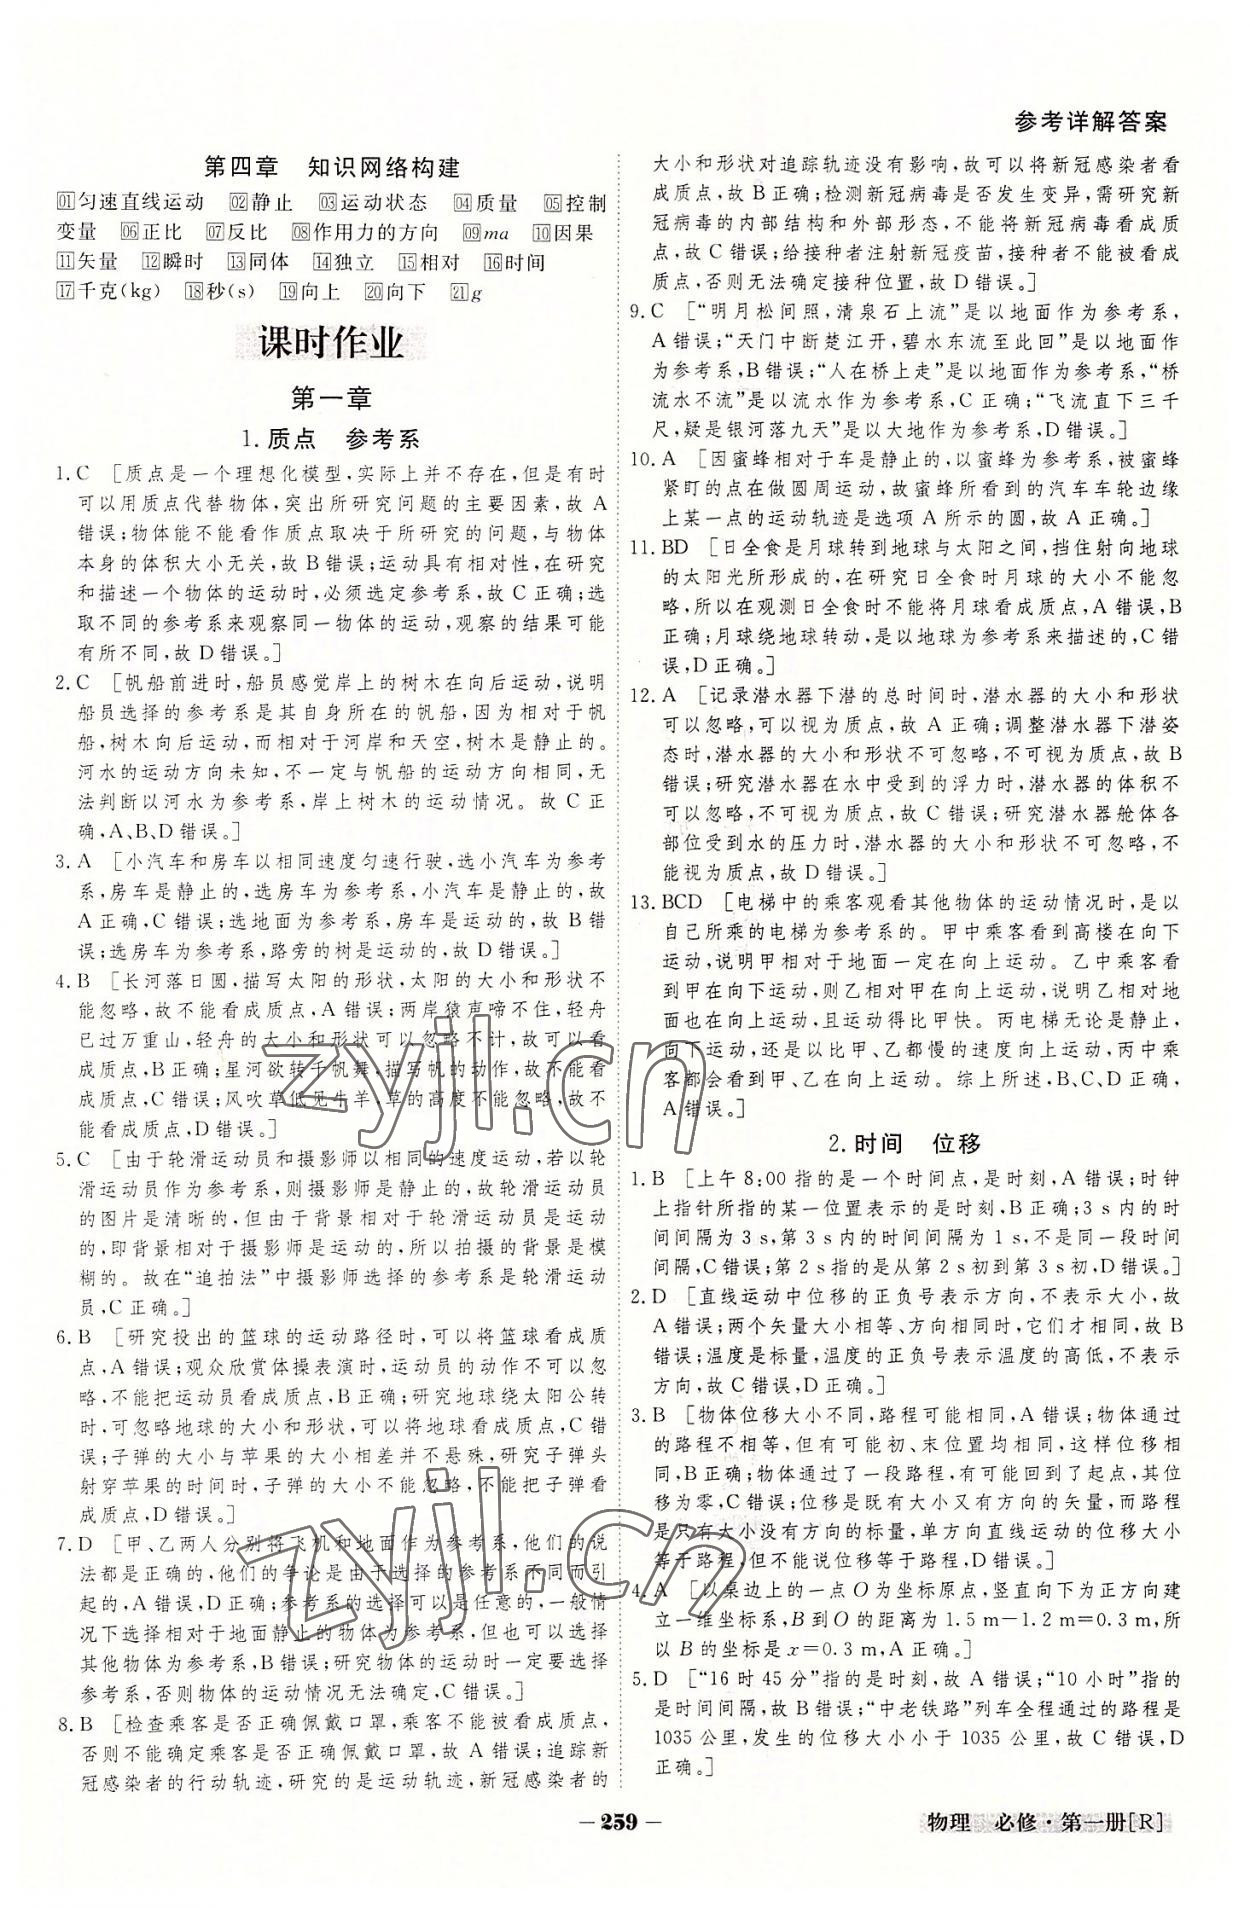 参考详解答案
第四章 知识网络构建
01匀速直线运动 02静止 03运动状态 04质量 05控制
变量 06正比 07反比 08作用力的方向 09ma 10因果
11矢量 12瞬时 13同体 14独立 15相对 16时间
17千克(kg) 18秒(s) 19向上 20向下 21g
课时作业
第一章
1.质点 参考系
1.C [质点是一个理想化模型,实际上并不存在,但是有时
可以用质点代替物体,突出所研究问题的主要因素,故 A
错误;物体能不能看作质点取决于所研究的问题,与物体
本身的体积大小无关,故 B 错误;运动具有相对性,在研究
和描述一个物体的运动时,必须选定参考系,故 C 正确;选
取不同的参考系来观察同一物体的运动,观察的结果可能
有所不同,故 D 错误。]
2.C [帆船前进时,船员感觉岸上的树木在向后运动,说明
船员选择的参考系是其自身所在的帆船,因为相对于帆
船,树木向后运动,而相对于河岸和天空,树木是静止的。
河水的运动方向未知,不一定与帆船的运动方向相同,无
法判断以河水为参考系,岸上树木的运动情况。故 C 正
确,A、B、D 错误。]
3.A [小汽车和房车以相同速度匀速行驶,选小汽车为参考
系,房车是静止的,选房车为参考系,小汽车是静止的,故
A 正确,C 错误;选地面为参考系,房车是运动的,故 B 错
误;选房车为参考系,路旁的树是运动的,故 D 错误。]
4.B [长河落日圆,描写太阳的形状,太阳的大小和形状不
能忽略,故不能看成质点,A 错误;两岸猿声啼不住,轻舟
已过万重山,轻舟的大小和形状可以忽略不计,故可以看
成质点,B 正确;星河欲转千帆舞,描写帆的动作,故不能看
成质点,C 错误;风吹草低见牛羊,草的高度不能忽略,故不
能看成质点,D 错误。]
5.C [由于轮滑运动员和摄影师以相同的速度运动,若以轮
滑运动员作为参考系,则摄影师是静止的,故轮滑运动员
的图片是清晰的,但由于背景相对于轮滑运动员是运动
的,即背景相对于摄影师是运动的,所以拍摄的背景是模
糊的。故在“追拍法”中摄影师选择的参考系是轮滑运动
员,C 正确。]
6.B [研究投出的篮球的运动路径时,可以将篮球看成质
点,A 错误;观众欣赏体操表演时,运动员的动作不可以忽
略,不能把运动员看成质点,B 正确;研究地球绕太阳公转
时,可忽略地球的大小和形状,可以将地球看成质点,C 错
误;子弹的大小与苹果的大小相差并不悬殊,研究子弹头
射穿苹果的时间时,子弹的大小不能忽略,不能把子弹看
成质点,D 错误。]
7.D [甲、乙两人分别将飞机和地面作为参考系,他们的说
法都是正确的,他们的争论是由于选择的参考系不同而引
起的,A 错误,D 正确;参考系的选择可以是任意的,一般情
况下选择相对于地面静止的物体为参考系,但也可以选择
其他物体为参考系,B 错误;研究物体的运动时一定要选择
参考系,否则物体的运动情况无法确定,C 错误。]
8.B [检查乘客是否正确佩戴口罩,乘客不能被看成质点,
否则不能确定乘客是否正确佩戴口罩,故 A 错误;追踪新
冠感染者的行动轨迹,研究的是运动轨迹,新冠感染者的
大小和形状对追踪轨迹没有影响,故可以将新冠感染者看
成质点,故 B 正确;检测新冠病毒是否发生变异,需研究新
冠病毒的内部结构和外部形态,不能将新冠病毒看成质
点,故 C 错误;给接种者注射新冠疫苗,接种者不能被看成
质点,否则无法确定接种位置,故 D 错误。]
9.C [“明月松间照,清泉石上流”是以地面作为参考系,
A 错误;“天门中断楚江开,碧水东流至此回”是以地面作
为参考系,B 错误;“人在桥上走”是以地面作为参考系,“桥
流水不流”是以流水作为参考系,C 正确;“飞流直下三千
尺,疑是银河落九天”是以大地作为参考系,D 错误。]
10.A [因蜜蜂相对于车是静止的,以蜜蜂为参考系,被蜜蜂
紧盯的点在做圆周运动,故蜜蜂所看到的汽车车轮边缘
上某一点的运动轨迹是选项 A 所示的圆,故 A 正确。]
11.BD [日全食是月球转到地球与太阳之间,挡住射向地球
的太阳光所形成的,在研究日全食时月球的大小不能忽
略,所以在观测日全食时不能将月球看成质点,A 错误,B
正确;月球绕地球转动,是以地球为参考系来描述的,C 错
误,D 正确。]
12.A [记录潜水器下潜的总时间时,潜水器的大小和形状
可以忽略,可以视为质点,故 A 正确;调整潜水器下潜姿
态时,潜水器的大小和形状不可忽略,不可视为质点,故 B
错误;研究潜水器在水中受到的浮力时,潜水器的体积不
可以忽略,不可视为质点,故 C 错误;研究潜水器舱体各
部位受到水的压力时,潜水器的大小和形状不可忽略,不
能视为质点,故 D 错误。]
13.BCD [电梯中的乘客观看其他物体的运动情况时,是以
自己所乘的电梯为参考系的。甲中乘客看到高楼在向下
运动,说明甲相对于地面一定在向上运动。乙中乘客看
到甲在向下运动,则乙相对甲在向上运动,说明乙相对地
面也在向上运动,且运动得比甲快。丙电梯无论是静止,
向下运动,还是以比甲、乙都慢的速度向上运动,丙中乘
客都会看到甲、乙在向上运动。综上所述,B、C、D 正确,
A 错误。]
2.时间 位移
1.B [上午 8:00 指的是一个时间点,是时刻,A 错误;时钟
上指针所指的某一位置表示的是时刻,B 正确;3 s 内的时
间间隔为 3 s,第 3 s 内的时间间隔为 1 s,不是同一段时间
间隔,C 错误;第 2 s 指的是从第 2 s 初到第 3 s 初,D 错误。]
2.D [直线运动中位移的正负号表示方向,不表示大小,故
A 错误;两个矢量大小相等、方向相同时,它们才相同,故 B
错误;温度是标量,温度的正负号表示温度的高低,不表示
方向,故 C 错误,D 正确。]
3.B [物体位移大小不同,路程可能相同,A 错误;物体通过
的路程不相等,但有可能初、末位置均相同,这样位移相
同,B 正确;物体通过了一段路程,有可能回到了起点,其位
移为零,C 错误;位移是既有大小又有方向的矢量,而路程
是只有大小没有方向的标量,单方向直线运动的位移大小
等于路程,但不能说位移等于路程,D 错误。]
4.A [以桌边上的一点 O 为坐标原点,竖直向下为正方向建
立一维坐标系,B 到 O 的距离为 1.5 m-1.2 m=0.3 m,所
以 B 的坐标是 x=0.3 m,A 正确。]
5.D [“16 时 45 分”指的是时刻,故 A 错误;“10 小时”指的
是时间间隔,故 B 错误;“中老铁路”列车全程通过的路程是
1035 公里,发生的位移大小小于 1035 公里,故 C 错误,D
正确。]
zyjl.cn
zyjl.cn
— 259 —
物理 必修·第一册[R]